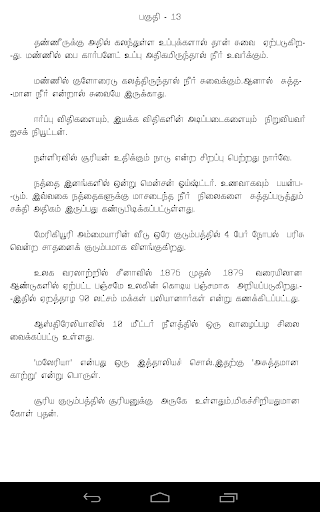 பகுதி - 13
தண்ணீருக்கு அதில் கலந்துள்ள உப்புக்களால் தான் சுவை ஏற்படுகிற-
-து. மண்ணில் பை கார்பனேட் உப்பு அதிகமிருந்தால் நீர் உவர்க்கும்.
மண்ணில் குளோரைடு கலந்திருந்தால் நீர் சுவைக்கும்.ஆனால் சுத்த-
-மான நீர் என்றால் சுவையே இருக்காது.
ஈர்ப்பு விதிகளையும், இயக்க விதிகளின் அடிப்படைகளையும் நிறுவியவர்
ஐசக் நியூட்டன்.
நள்ளிரவில் சூரியன் உதிக்கும் நாடு என்ற சிறப்பு பெற்றது நார்வே.
நத்தை இனங்களில் ஒன்று மென்சன் ஒய்ஷ்ட்டர். உணவாகவும் பயன்ப-
-டும். இவ்வகை நத்தைகளுக்கு மாசடைந்த நீர் நிலைகளை சுத்தப்படுத்தும்
சக்தி அதிகம் இருப்பது கண்டுபிடிக்கப்பட்டுள்ளது.
மேரிகியூரி அம்மையாரின் வீடு ஒரே குடும்பத்தில் 4 பேர் நோபல் பரிசு
வென்ற சாதனைக் குடும்பமாக விளங்குகிறது.
உலக வரலாற்றில் சீனாவில் 1876 முதல் 1879 வரையிலான
ஆண்டுகளில் ஏற்பட்ட பஞ்சமே உலகின் கொடிய பஞ்சமாக அறியப்படுகிறது.-
-இதில் ஏறத்தாழ 90 லட்சம் மக்கள் பலியானார்கள் என்று கணக்கிடப்பட்டது.
ஆஸ்திரேலியாவில் 10 மீட்டர் நீளத்தில் ஒரு வாழைப்பழ சிலை
வைக்கப்பட்டு உள்ளது.
'மலேரியா' என்பது ஒரு இத்தாலியச் சொல்.இதற்கு 'அசுத்தமான
காற்று' என்று பொருள்.
சூரிய குடும்பத்தில் சூரியனுக்கு அருகே உள்ளதும்,மிகச்சிறியதுமான
கோள் புதன்.